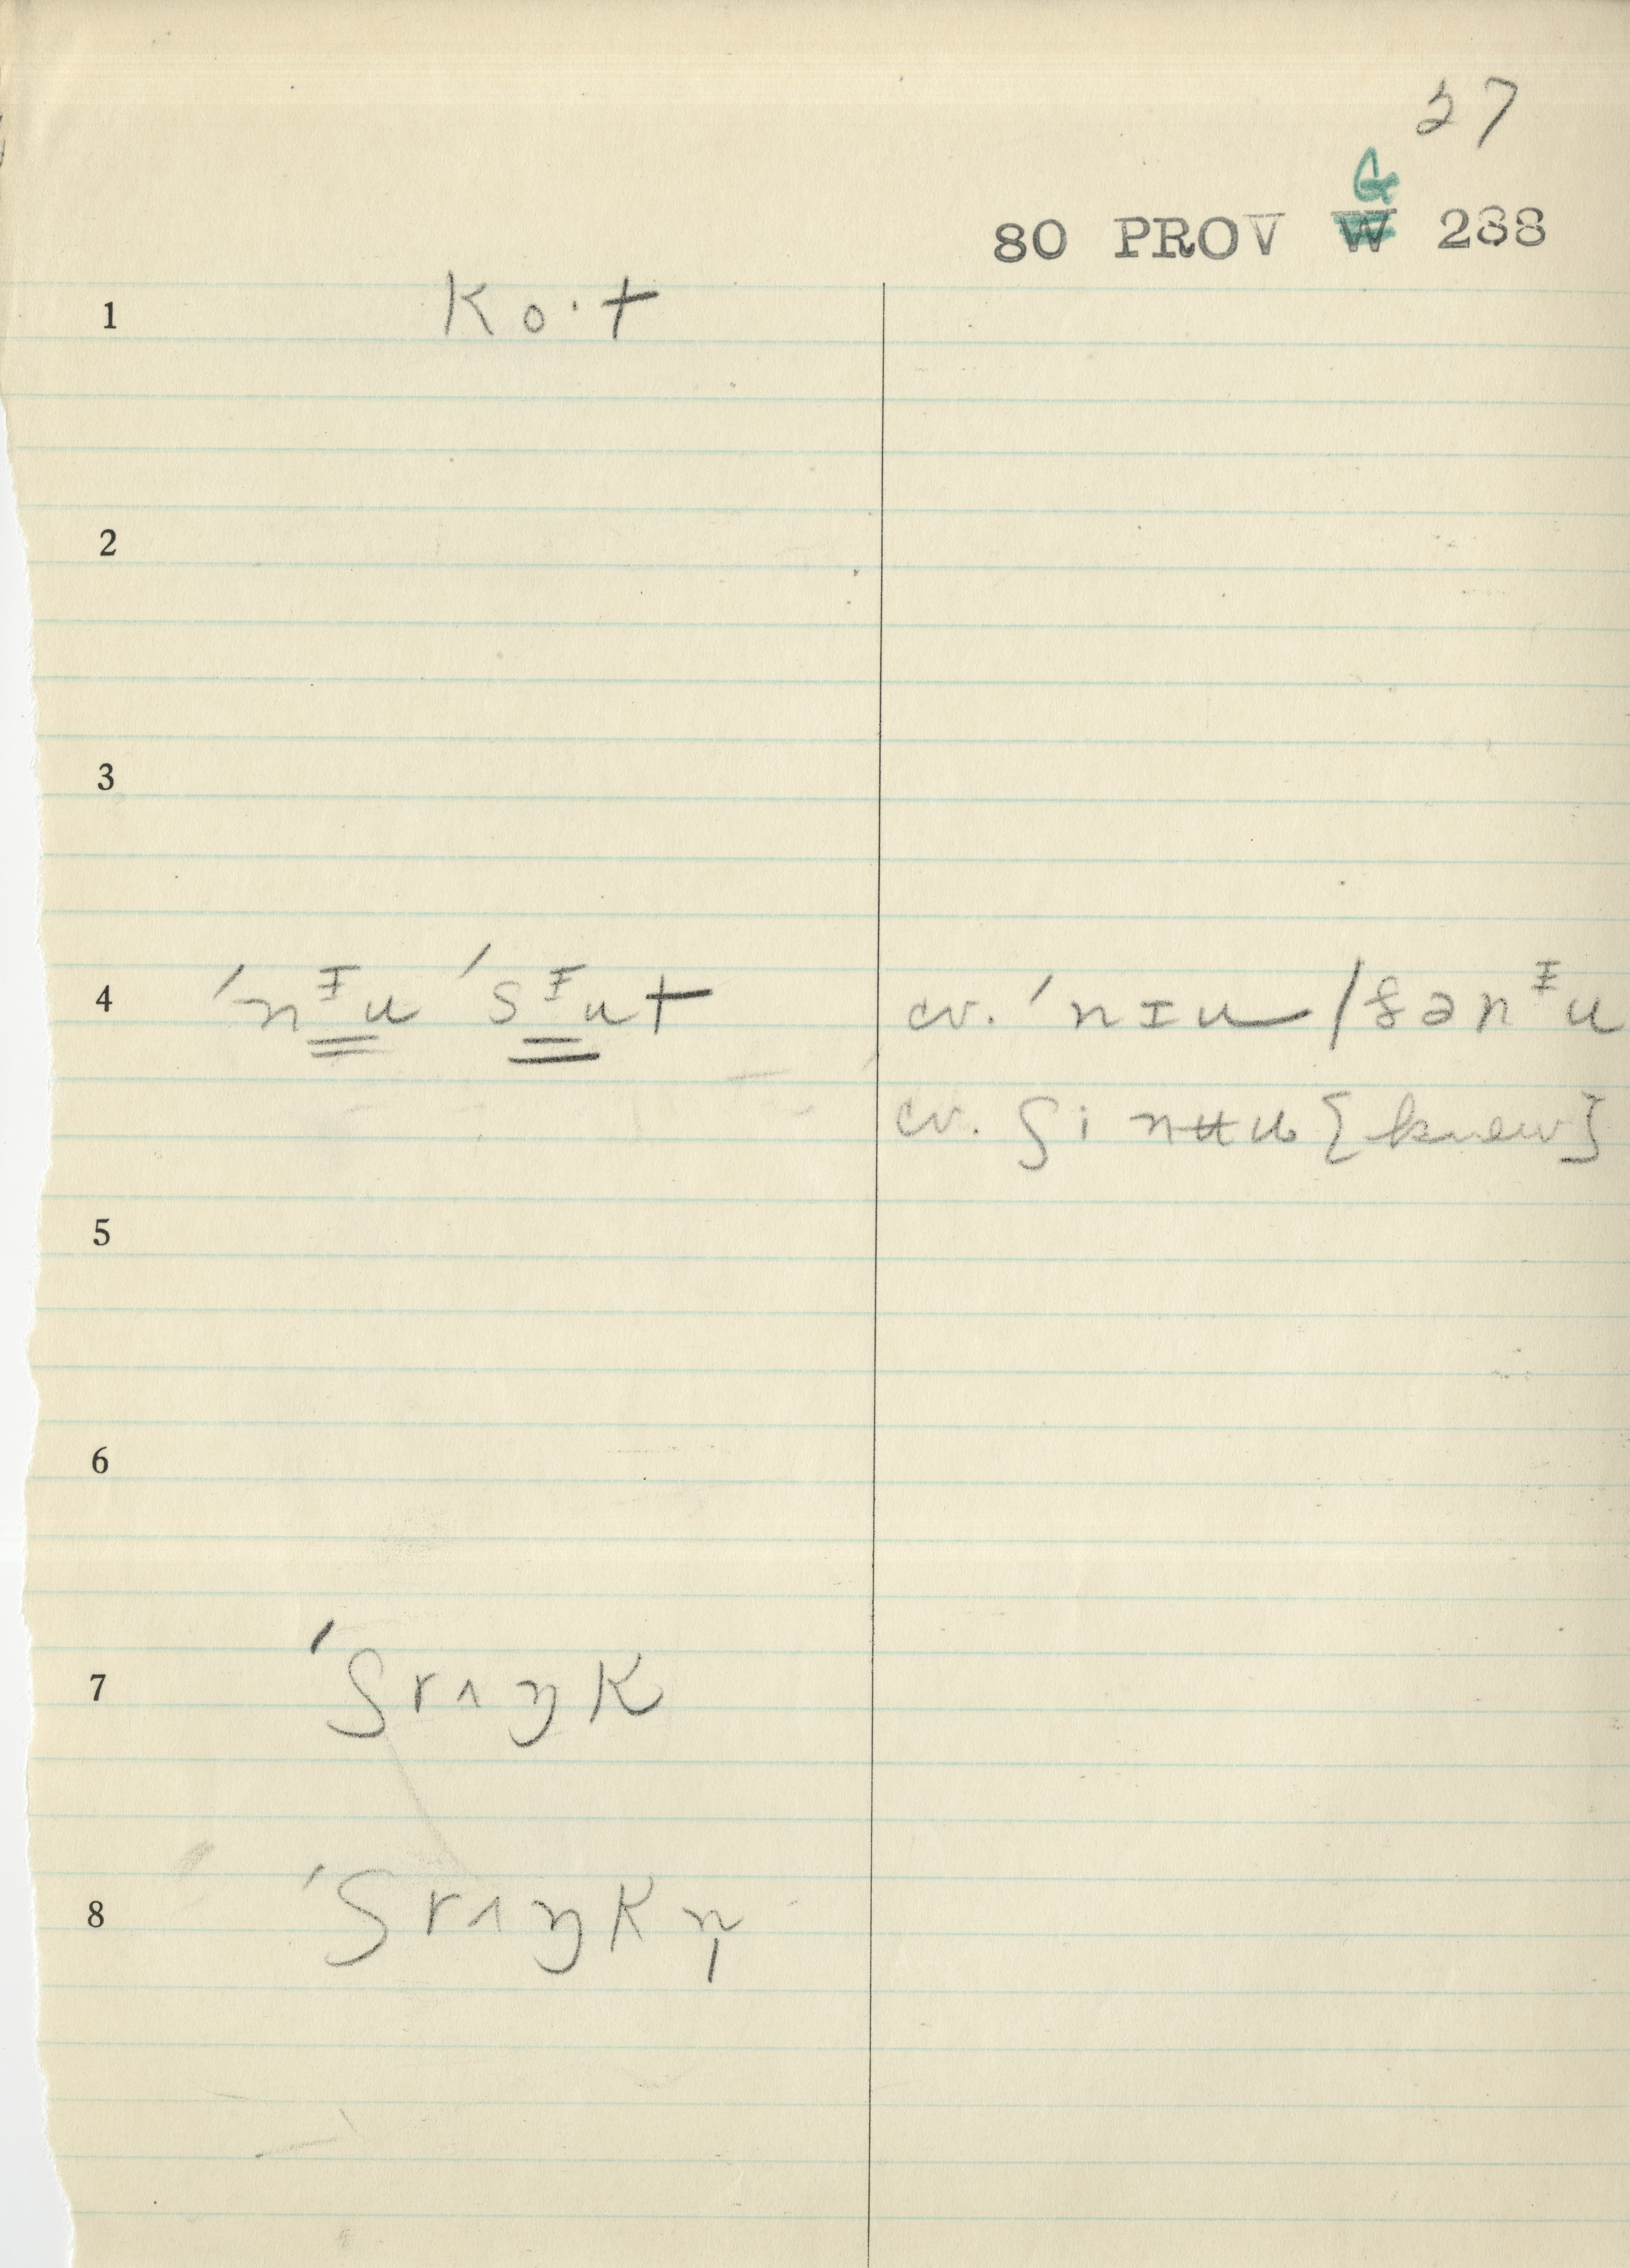 37
G
80 PROV W 288
1 ko·t
2
3
4 ˈnᵻu ˈsᵻut cv. ˈnɪu /fənᵻu
cv. ʃi nʉu [knew]
5
6
7 ˈʃrʌŋk
8 ˈʃrʌŋkn̩